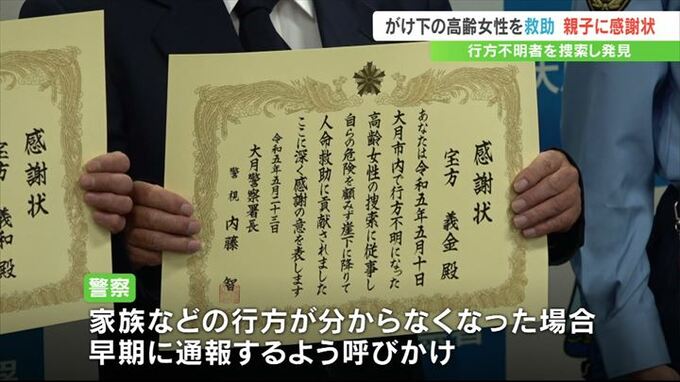 がけ下の高齢女性を救助 親子に感謝状
行方不明者を捜索し発見
感謝状
宝方 義金 殿
あなたは令和五年五月十日
大月市内で行方不明になった
高齢女性の捜索に従事し
自らの危険を顧みず崖下に降りて
人命救助に貢献されました
ここに深く感謝の意を表します
令和五年五月二十三日
大月警察署長
警視 内藤 智
感謝状
宝方 義和 殿
警察
家族などの行方が分からなくなった場合
早期に通報するよう呼びかけ